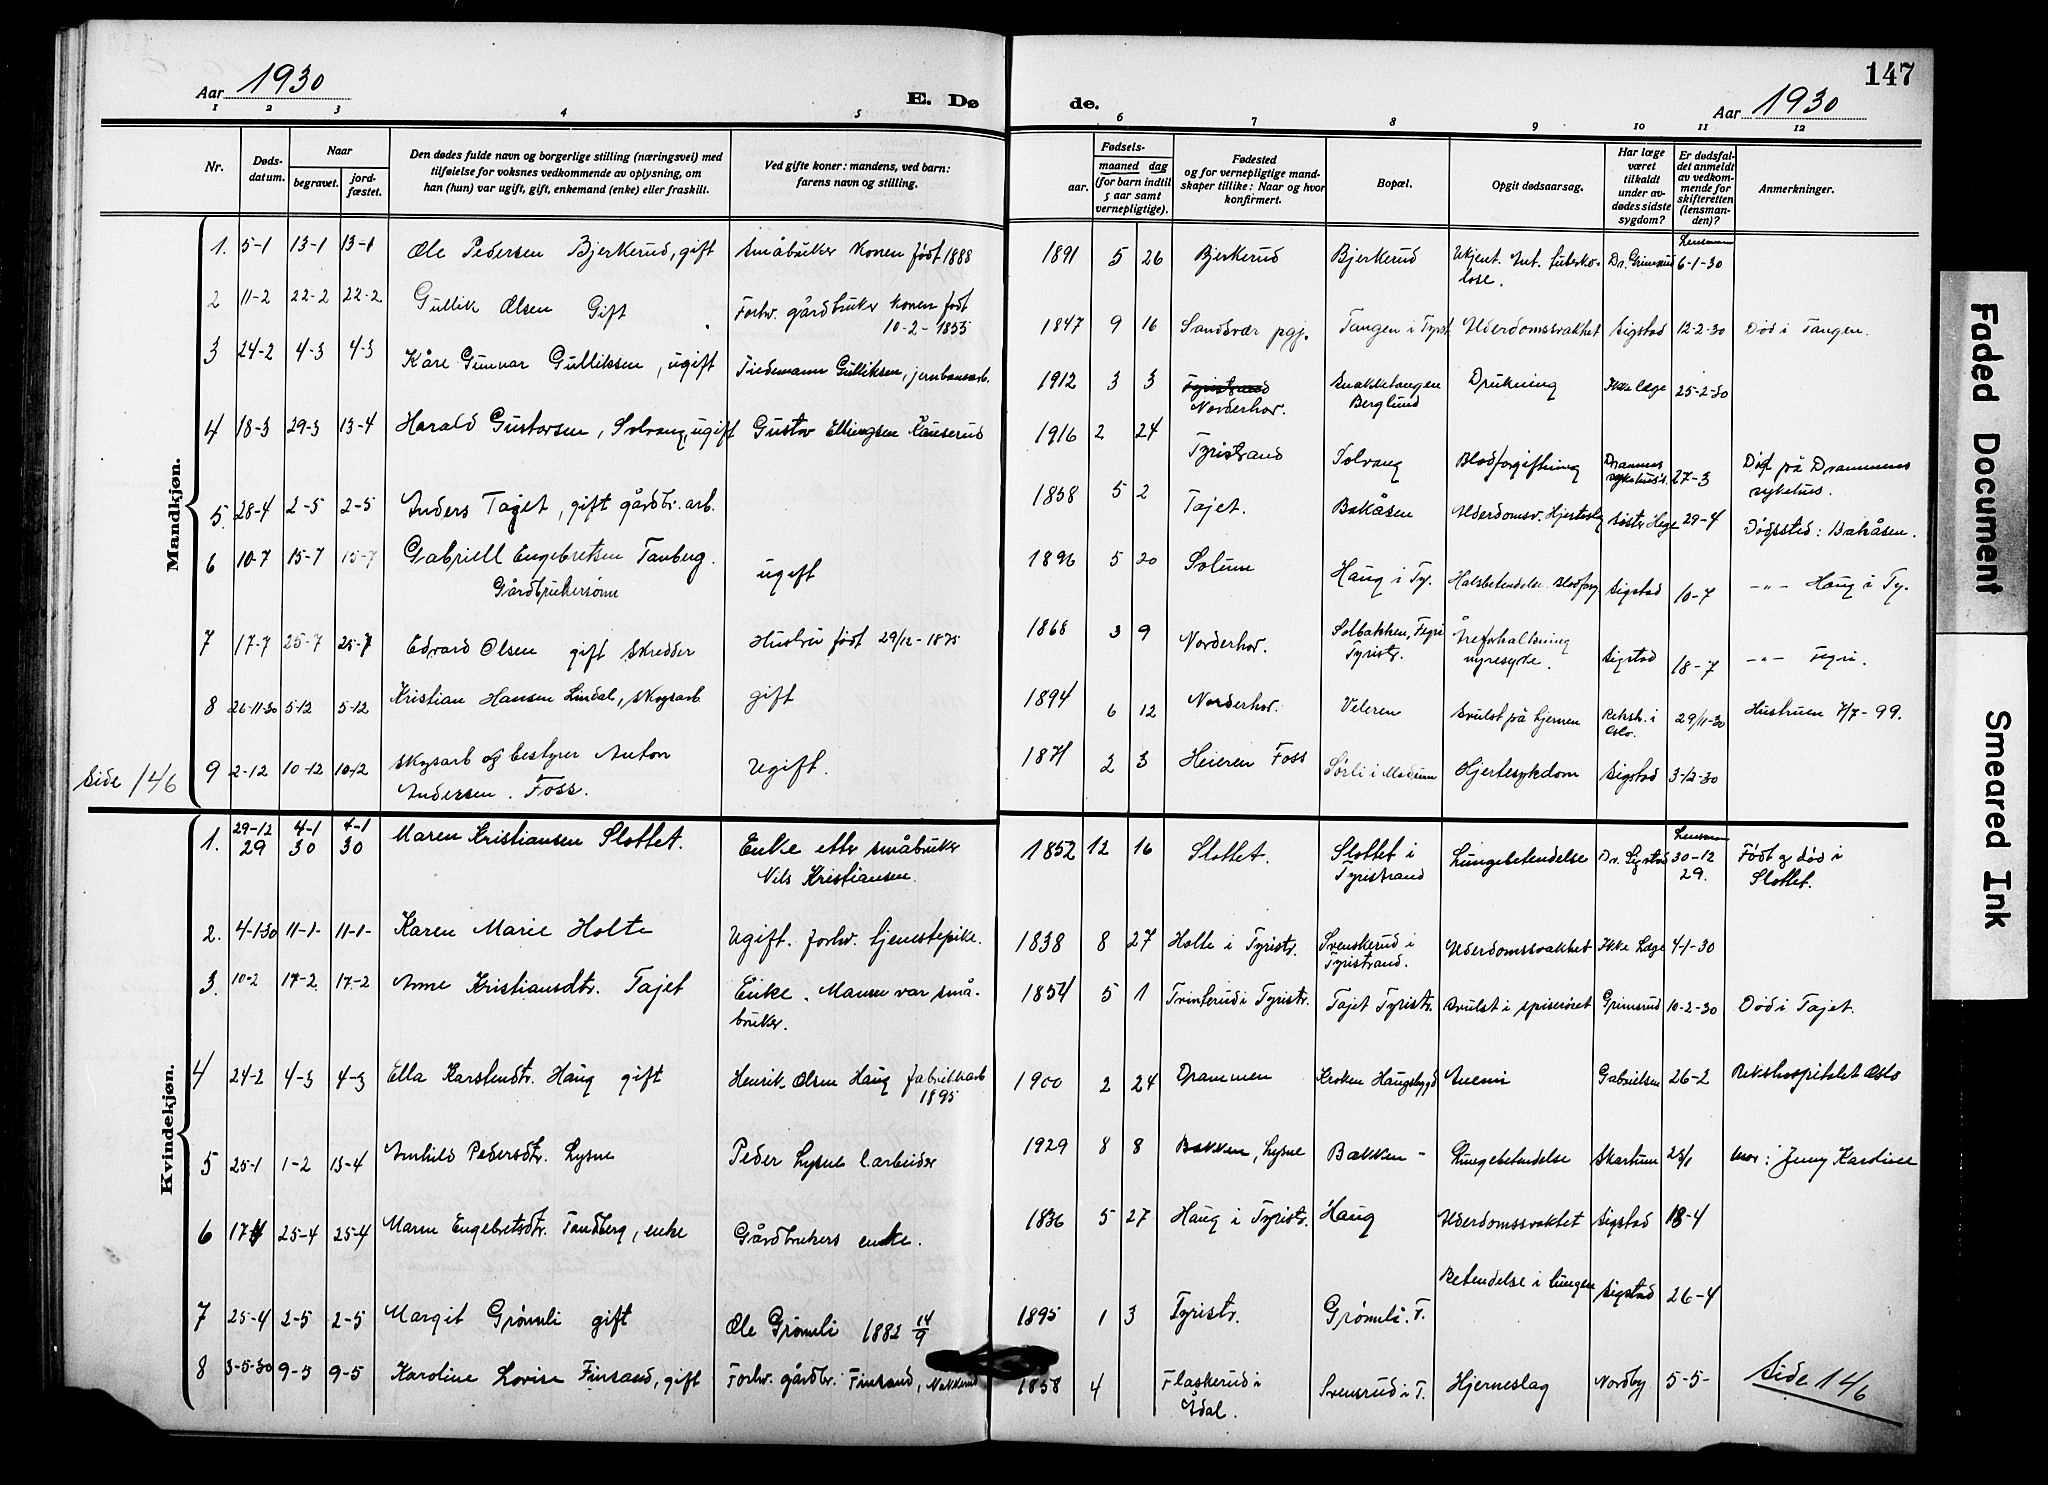 147
Aar 1930
E. Dø
de.
Aar 1930
1 2 3 4 5 6 7 8 9 10 11 12
Nr.
Døds-
datum.
Naar
begravet.
jord-
fæstet.
Den dødes fulde navn og borgerlige stilling (næringsvei) med
tilføielse for voksnes vedkommende av oplysning, om
han (hun) var ugift, gift, enkemand (enke) eller fraskilt.
Ved gifte koner: mandens, ved barn:
farens navn og stilling.
Fødsels-
aar.
maaned dag
(for barn indtil
5 aar samt
vernepligtige).
Fødested
og for vernepligtige mand-
skaper tillike: Naar og hvor
konfirmert.
Bopæl.
Opgit dødsaarsag.
Har læge
været
tilkaldt
under av-
dødes sidste
sygdom?
Er dødsfal-
det anmeldt
av vedkom-
mende for
skifteretten
(lensman-
den)?
Anmerkninger.
Mandkjøn.
1. 5-1 13-1 13-1 Ole Pedersen Bjerkerud, gift Småbruker Konen født 1888 1891 5 26 Bjerkerud Bjerkerud Ukjent. Int. tuberko-
lose. Dr. Grimsrud Lensman 6-1-30
2 11-2 22-2 22-2 Gullik Olsen Gift Forhv. gårdbruker Konen født
10-2-1855 1847 9 16 Sandsvær pgj. Tangen i Tyrist. Alderdomssvakhet Sigstad 12-2-30 Død i Tangen.
3 24-2 4-3 4-3 Kåre Gunnar Gulliksen, ugift Tiedemann Gulliksen, jernbanearb. 1912 3 3 Tyristrand
Norderhov. Snakketangen
Berglund Drukning Ikke læge 25-2-30
4 18-3 29-3 13-4 Harald Gustavsen, Solvang, ugift Gustav Ellingsen 1916 2 24 Tyristrand Solvang Blodforgiftning Drammens
sykehus 27-3 Død på Drammens
sykehus.
5. 28-4 2-5 2-5 Anders Tajet, gift gårdbr. arb. 1858 5 2 Tajet. Bakåsen Alderdomsv. Hjerteslag Søster Hege 29-4 Dødssted: Bakåsen.
6 10-7 15-7 15-7 Gabriell Engebretsen Tanberg.
Gårdbrukersønn ugift 1896 5 20 Solum Haug i Ty. Halsbetendelse Blodforg. Sigstad 10-7 -"- Haug i Ty.
7 17-7 25-7 25-7 Edvard Olsen gift skredder Hustru født 29/12-1875 1868 3 9 Norderhov. Solbakken, Fegri
Tyristr. Åreforkalkning
nyresyke. Sigstad 18-7 -"- Fegri.
8 26-11-30 5-12 5-12 Kristian Hansen Lindal, skogsarb gift 1894 6 12 Norderhov. Veleren Svulst på hjernen Riksh. i
Oslo. 29/11-30 Hustruen 7/7-99.
Side 146
9 2-12 10-12 10-12 Skogsarb og bestyrer Anton
Andersen. Foss. Ugift. 1871 2 3 Heieren Foss Sørli i Modum Hjertesykdom Sigstad 3-12-30
Kvindekjøn.
1. 29-12
29 4-1
30 4-1
30 Maren Kristiansen Slottet. Enke etter småbruker
Nils Kristiansen. 1852 12 16 Slottet. Slottet i
Tyristrand Lungebetendelse Dr. Sigstad Lensman 30-12
29. Født og død i
Slottet.
2. 4-1-30 11-1- 11-1- Karen Marie Holte Ugift. forhv. tjenestepike. 1838 8 27 Holte i Tyristr. Svenskerud i
Tyristrand. Alderdomssvakhet Ikke Læge 4-1-30
3. 10-2 17-2. 17-2 Anne Kristiansdtr. Tajet Enke. Mannen var små-
bruker. 1854 5 1 Tvinterud i Tyristr. Tajet Tyristr. Svulst i spiserøret Grimsrud 10-2-30 Død i Tajet.
4 24-2 4-3 4-3 Ella Karstendtr. Haug gift Henrik Olsen Haug fabrikkarb
1895 1900 2 24 Drammen Kroken Haugsbygd Anemi Gabrielsen 26-2 Rikshospitalet Oslo
5 25-1 1-2 13-4 Arnhild Pedersdtr. Lysne Peder Lysne arbeider 1929 8 8 Bakken, Lysne Bakken - Lungebetendelse Skartum 25/1 Mor: Jenny Karoline
6 17-4 25-4 25-4 Maren Engebretsdtr. Tandberg, enke Gårdbrukers enke. 1836 5 27 Haug i Tyristr. Haug Alderdomssvakhet Sigstad 18-4
7 25-4 2-5 2-5 Margit Grømli gift Ole Grømli 1882 14/9 1895 1 3 Tyristr. Grømli. T. Betendelse i lungen Sigstad 26-4
8 3-5-30 9-5 9-5 Karoline Lovise Finsand, gift Forhv. gårdbr. Finsand, Nakkerud 1858 4 Flaskerud i
Ådal. Svensrud i T. Hjerneslag Nordby 5-5- Side 146
Faded Document
Smeared Ink